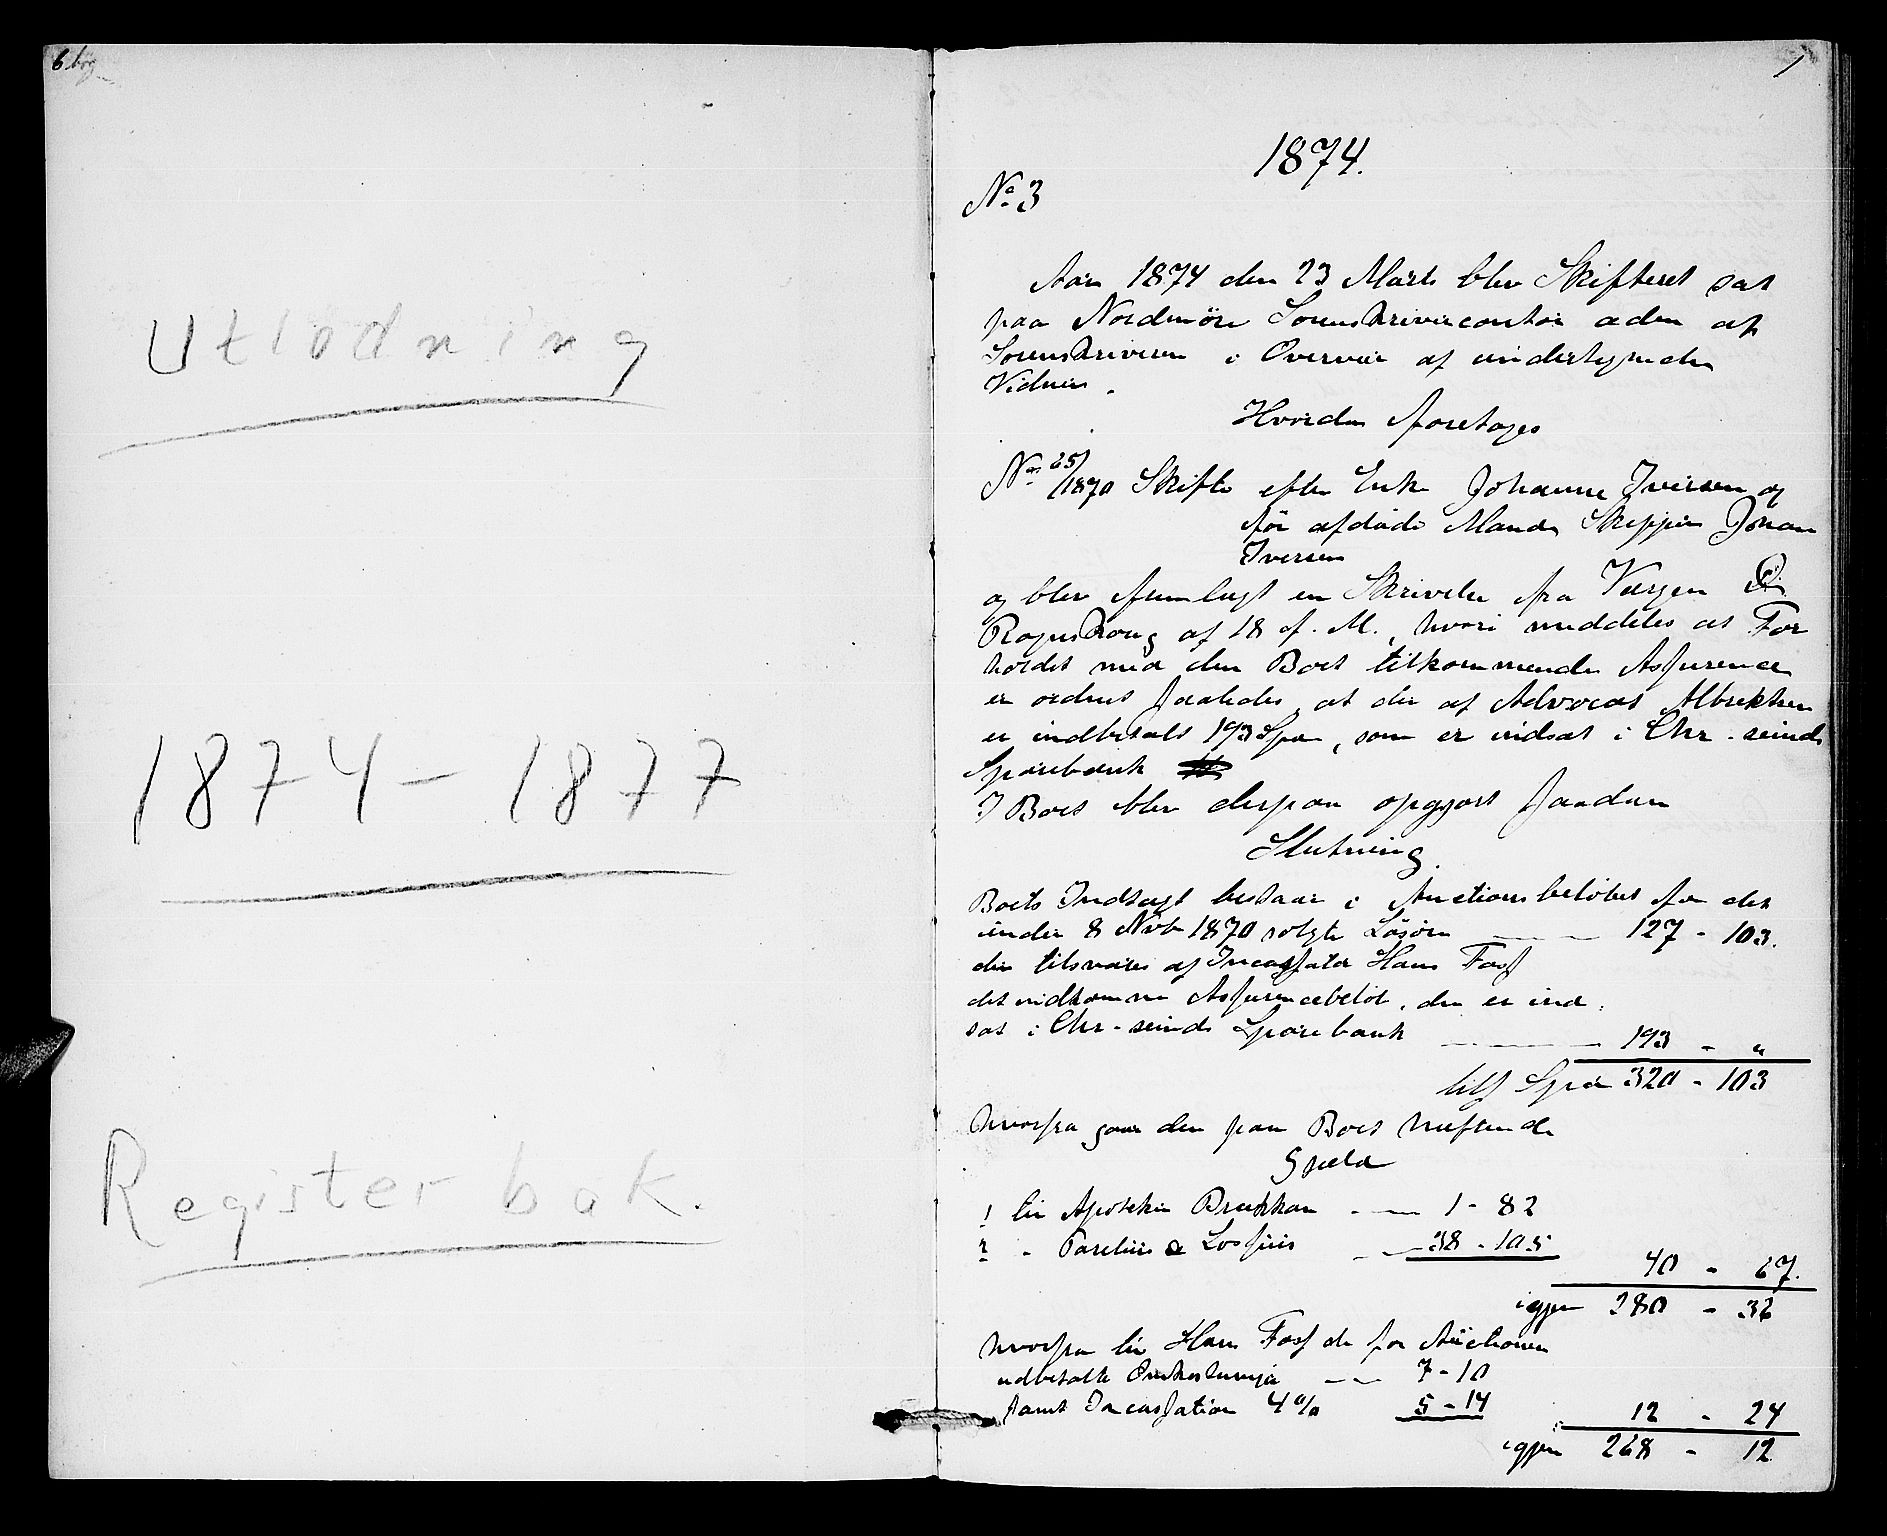 6 bog
Utlodning
1874 - 1877
Register bak.
1
1874.
No 3
Aar 1874 den 23 Marts blev Skifteret sat
paa Nordmöre Sorenskrivercontor aden af
Sorenskriveren i Overvær af undertegnede
Vidner.
Hvorda foretoges
No 25/1870 Skifte efter Enke Johanne Iversen og
før afdøde Mand Skipper Johan
Iversen
og blev fremlagt en Skrivelse fra Værgen
af 18 d. M., hvori meddeles at For
holdet med den Boet tilkommende Assurance
er ordnet saaledes, at der af Advocat Albrektsen
er indbetalt 193 Spd, som er indsat i Chr.sunds
Sparebank
I Boet blev derpaa opgjort saadan
Slutning.
Boets Indtægt bestaar i Auctionsbeløbet for det
under 8 Novb 1870 solgte Løsøre 127 - 103.
der tilsvares af Incassator Hans Foss
det indkomne Assurancebeløb, der er ind
sat i Chr-sunds Sparebank 193 - "
tils Spd 320 - 103
hvorfra gaar den paa Boet heftende
Gjæld
1 til Apotheker Brækkan 1 - 82
2 - Parelius & Lossius 38 - 105
40 - 67.
igjen 280 - 36
hvorfra til Hans Foss de for Auctionen
udbetalte Omkostninger 7 - 10
samt Incassation 4 % 5 - 14
12 - 24
igjen 268 - 12